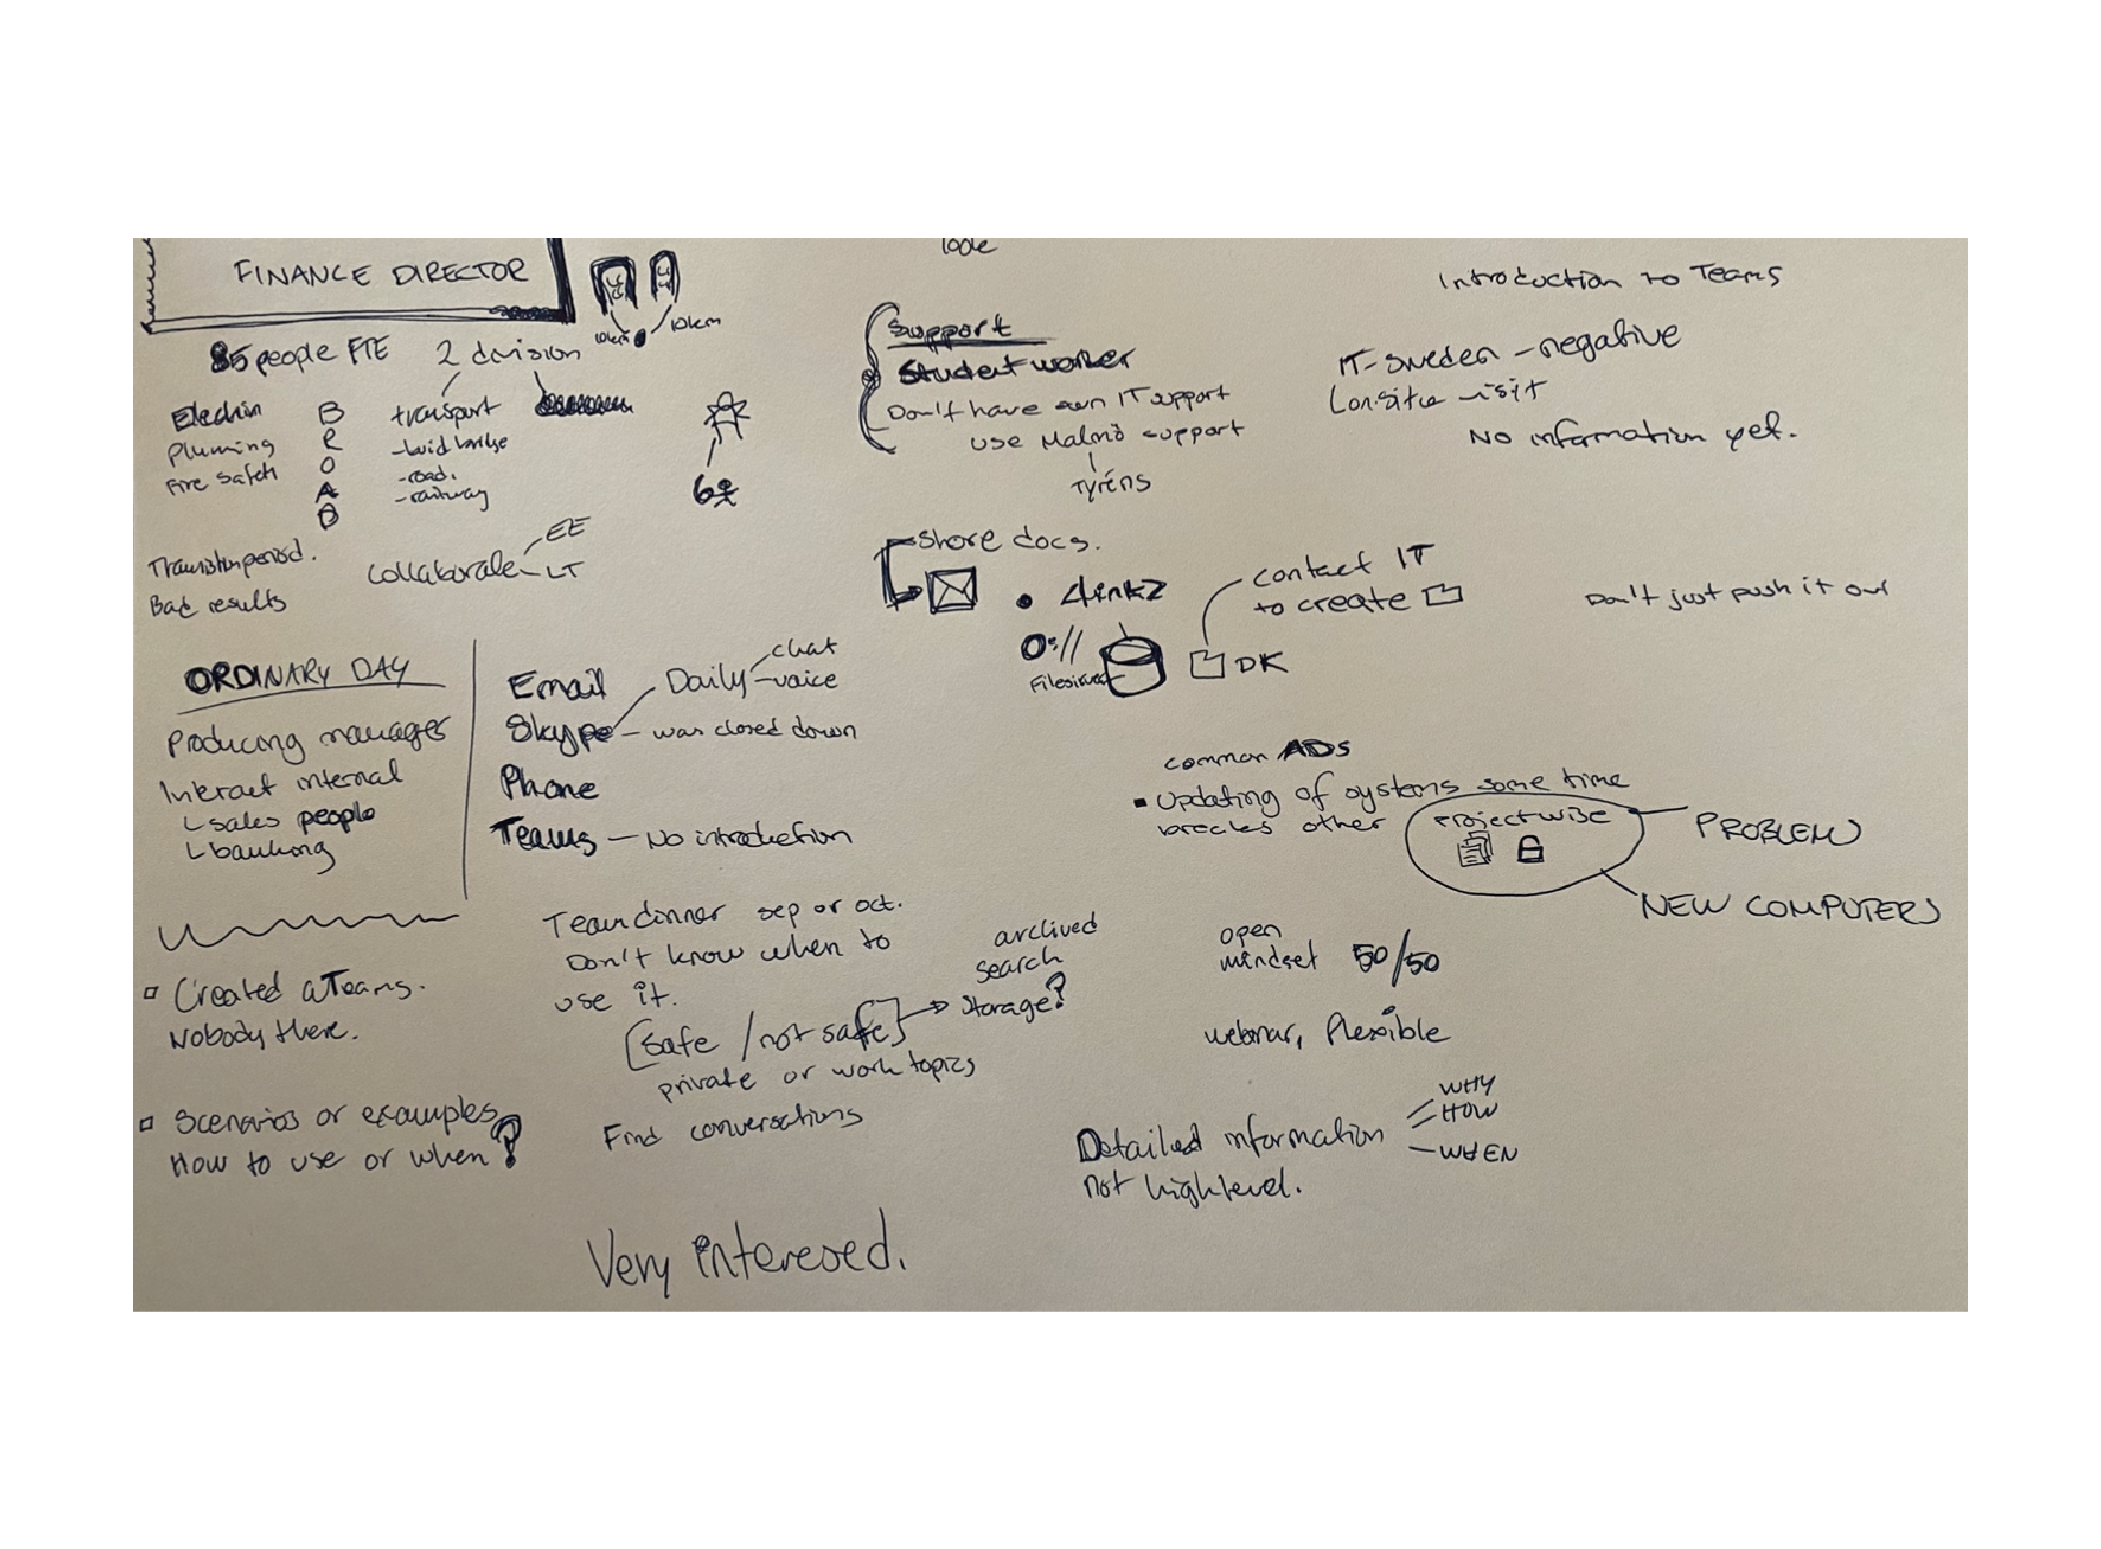 FINANCE DIRECTOR
10km
10km
85 people FTE
2 division
Pluming
Fire Safety
B
R
O
A
D
transport
-road.
-railway
6
Bad results
collaborate
EE
LT
ORDINARY DAY
Producing manager
Interact internal
sales people
banking
Email
Skype - was closed down
Daily
chat
voice
Phone
Teams - No introduction
Created a Teams.
Nobody there.
Scenarios or examples
How to use or when?
Teamdinner sep or oct.
Don't know when to
use it.
[safe / not safe]
private or work topics
Find conversations
archived
search
storage?
Very interesed.
Support
Student worker
Don't have own IT support
use Malmö support
Tyréns
Share docs.
O://
contact IT
to create
DK
common ADs
Updating of systems some time
breaks other
Projectwise
PROBLEM
NEW COMPUTERS
open
mindset 50/50
webinar, flexible
Detailed information
not highlevel.
WHY
HOW
WHEN
Introduction to Teams
IT-Sweden - negative
No information yet.
Don't just push it out